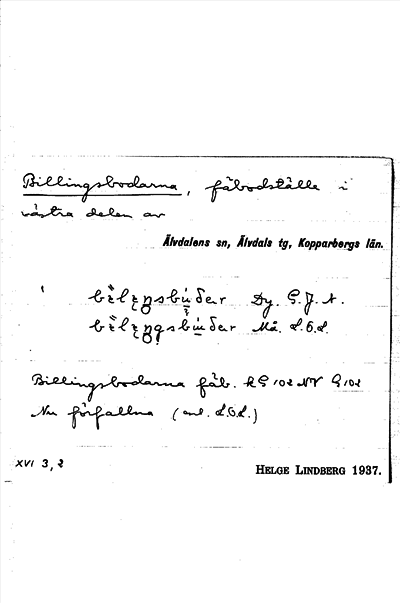 Billingsbodarna, fäbodställe i
västra delen av
Älvdalens sn, Älvdals tg, Kopparbergs län.
Dy. G. J. A.
Må. L.O.L.
Billingsbodarna fäb. kG 102 NV G 102
Nu förfallna (enl. L.O.L.)
XVI 3, 2
HELGE LINDBERG 1937.